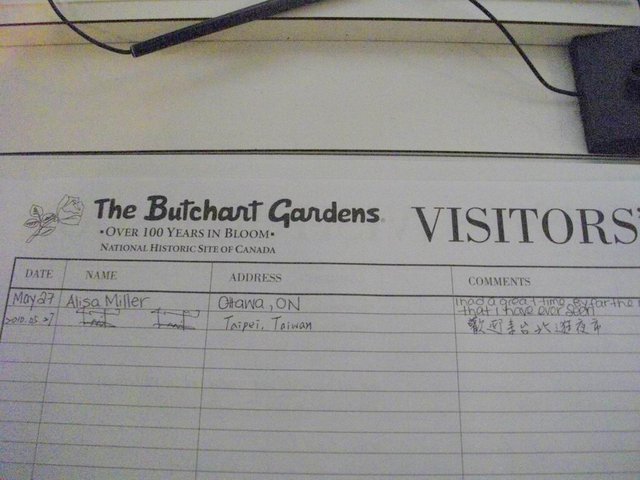 The Butchart Gardens
• OVER 100 YEARS IN BLOOM •
NATIONAL HISTORIC SITE OF CANADA
VISITORS'
DATE NAME ADDRESS COMMENTS
May 27 Alisa Miller Ottawa, ON I had a great time. By far the
that I have ever seen
2010.05.27 Taipei, Taiwan 歡迎來台北遊夜市